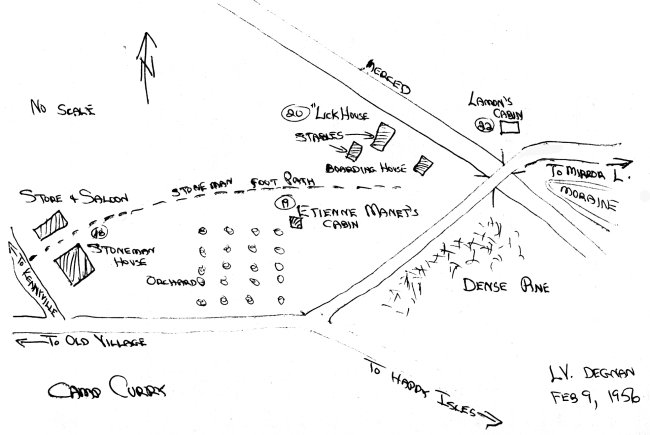 MERCED
No SCALE
20 "LICK HOUSE
STABLES
BOARDING HOUSE
LAMON'S
CABIN
22
TO MIRROR L.
MORAINE
STONEMAN FOOT PATH
STORE & SALOON
18
STONEMAN
HOUSE
19
ETIENNE MANET'S
CABIN
ORCHARD
TO KENNYVILLE
DENSE PINE
TO OLD VILLAGE
CAMP CURRY
TO HAPPY ISLES
L.V. DEGNAN
FEB 9, 1956